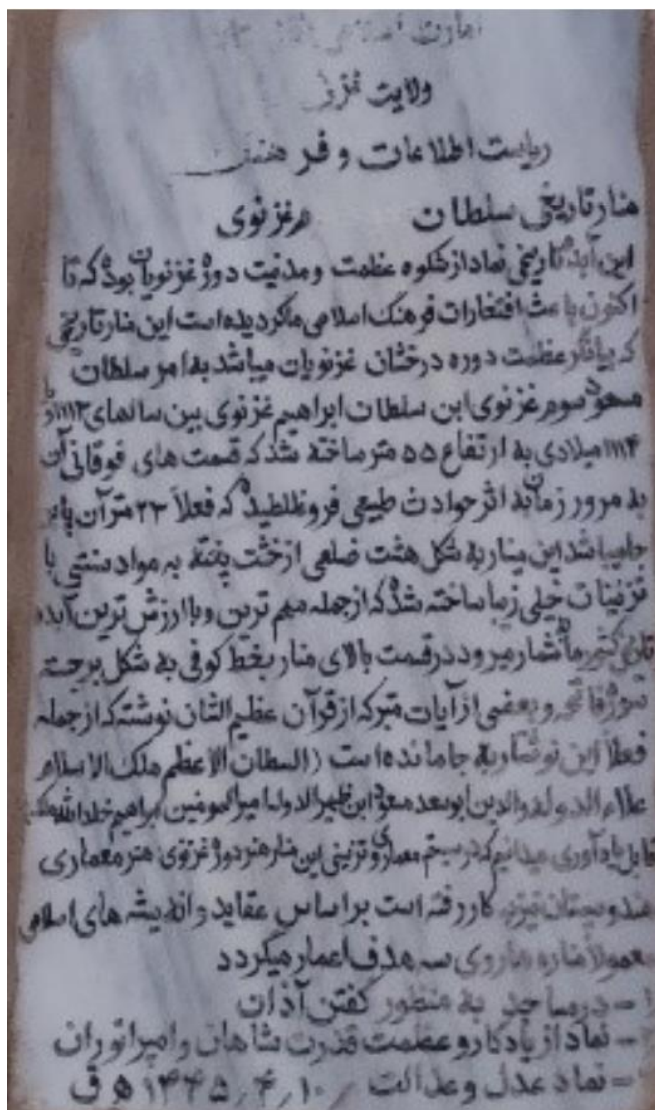 امارت اسلامی
ولایت غزنی
ریاست اطلاعات و فرهنگ
منار تاریخی سلطان م غزنوی
این آبده تاریخی نماد از شکوه عظمت و مدنیت دوره غزنویان بوده که تا
اکنون باعث افتخارات فرهنگ اسلامی ما گردیده است این منار تاریخی
که بیانگر عظمت دوره درخشان غزنویان میباشد به امر سلطان
مسعود سوم غزنوی ابن سلطان ابراهیم غزنوی بین سالهای ۱۱۱۳
۱۱۱۴ میلادی به ارتفاع ۵۵ متر ساخته شد که قسمت های فوقانی آن
به مرور زمان به اثر حوادث طبیعی فروغلطیده که فعلاً ۲۳ متر آن پا بر
جا میباشد این مینار به شکل هشت ضلعی از خشت پخته به مواد سنتی با
تزئینات خیلی زیبا ساخته شده که از جمله مهم ترین و با ارزش ترین آبده
کشور ما بشمار میرود در قسمت بالای منار بخط کوفی به شکل برجسته
سوره فاتحه و بعضی از آیات متبرکه از قرآن عظیم الشان نوشته که از جمله
فعلاً این نوشتار به جا مانده است (السطان الاعظم ملک الاسلام
علاء الدوله والدین ابو سعد مسعود ابن ظهیر الدوله امیر المومنین ابراهیم خلد الله ملکه
قابل یادآوری میدانیم که در سبک معماری و تزئینی این منار هنر دوره غزنوی هنر معماری
هندوستان نیز به کار رفته است بر اساس عقاید و اندیشه های اسلامی
معمولاً مناره ها روی سه هدف اعمار میگردد
۱- در مساجد به منظور گفتن آذان
۲- نماد از یادگار و عظمت قدرت شاهان و امپراتوران
۳- نماد عدل و عدالت ۱۰/۴/۱۴۴۵ ه ق